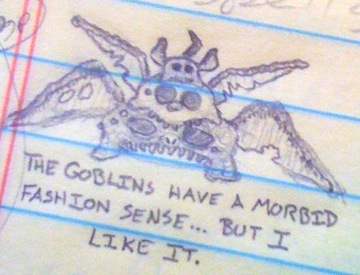 THE GOBLINS HAVE A MORBID
FASHION SENSE... BUT I
LIKE IT.